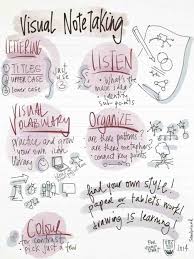 Visual NoteTaking
LETTERING
① TITLES
② UPPER CASE
③ lower case
just
use
3
LISTEN
• What's the
main idea
• identify
sub points
VISUAL
VOCABULARY
practice and
grow your
own icon
library
ORGANIZE
are there patterns?
are there metaphors?
connect key points
Colour
for contrast.
Pick just a few
find your own style!
paper or tablets work!
drawing is learning!